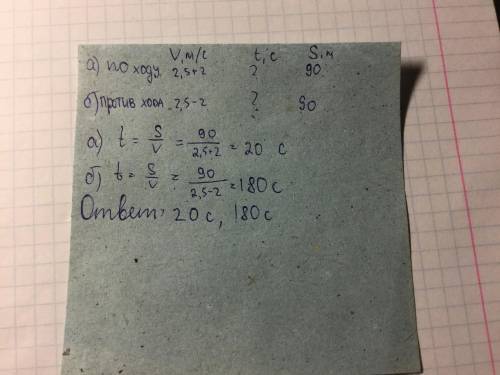 V, м/с t, с S, м
а) по ходу 2,5+2 ? 90
б) против хода 2,5-2 ? 90
а) t = S/V = 90/2,5+2 = 20 с
б) t = S/V = 90/2,5-2 = 180 с
Ответ: 20 с, 180 с